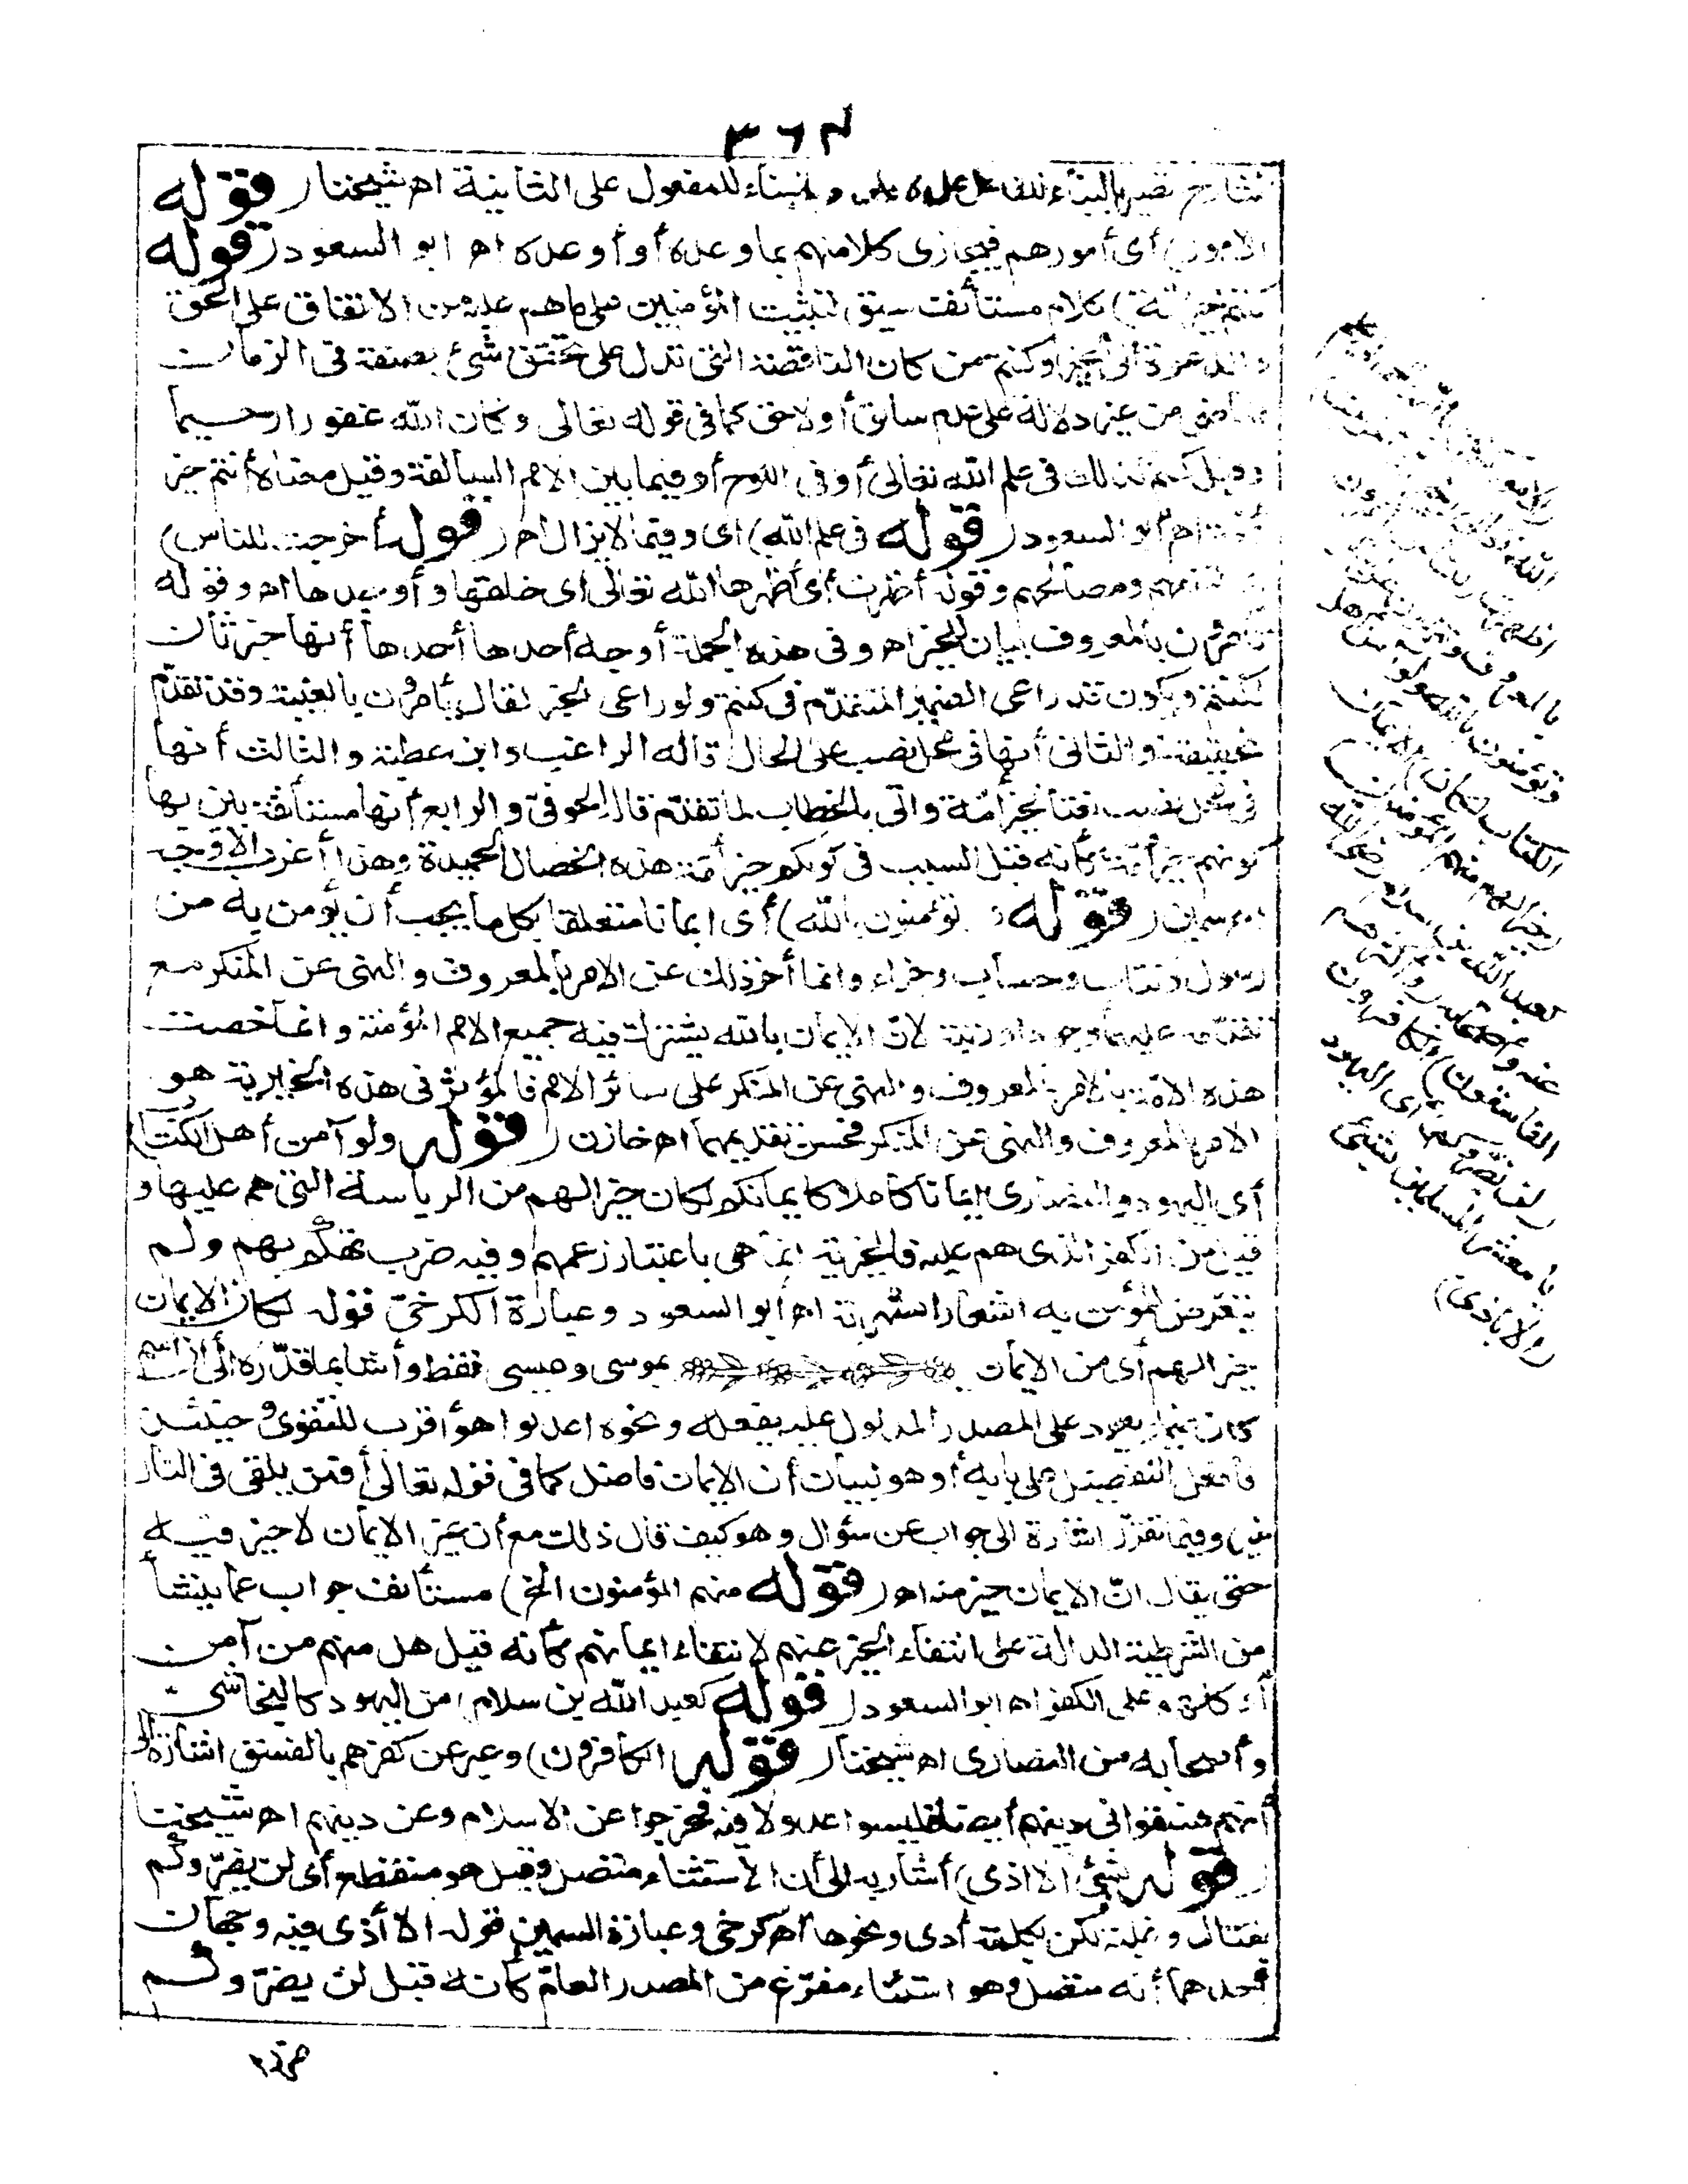 ٣٦٣
تصير بالبناء للفاعل على وللبناء للمفعول على الثانية اه شيخنا (قوله
الامور) أى أمورهم فيجازى كلا منهم بما وعده أو أوعده اه ابو السعود (قوله
كنتم خير أمة) كلام مستأنف سيق لتثبيت المؤمنين على ما هم عليه من الاتفاق على الحق
والدعوة الى الخير وكنتم من كان الناقصة التى تدل على تحقق شئ بصفة فى الزمان
الماضى من غير دلالة على عدم سابق أو لاحق كما فى قوله تعالى وكان الله غفورا رحيما
وقيل كنتم كذلك فى علم الله تعالى أو فى اللوح أو فيما بين الامم السالفة وقيل معناه أنتم خير
أمة اه أبو السعود (قوله فى علم الله) اى وفيما لا يزال اه (قوله أخرجت للناس)
ومصالحهم وقوله أظهرت أى أظهرها الله تعالى اى خلقها وأوجدها اه وقوله
تأمرون بالمعروف بيان للخير اه وفى هذه الجملة أوجه أحدها أحدها أنها خبر ثان
لكنتم ويكون قد راعى الضمير المتقدّم فى كنتم ولو راعى الخبر لقال يأمرون بالغيبة وقد تقدّم
تحقيقه والثانى أنها فى محل نصب على الحال قاله الراغب وابن عطية والثالث أنها
فى محل نصب نعتا لخير أمّة وأتى بالخطاب لما تقدّم قاله الحوفىّ والرابع أنها مستأنفة بين بها
كونهم خير أمة كأنه قيل السبب فى كونكم خير أمّة هذه الخصال الحميدة وهذا أغرب الاوجه
اه سمين (قوله وتؤمنون بالله) أى ايمانا متعلقا بكل ما يجب أن يؤمن به من
رسول وكتاب وحساب وجزاء وانما أخر ذلك عن الامر بالمعروف والنهى عن المنكر مع
تقدّمه عليهما وجودا ورتبة لانّ الايمان بالله يشترك فيه جميع الامم المؤمنة وانما خصت
هذه الامّة بالامر بالمعروف والنهى عن المنكر على سائر الامم فالمؤثر فى هذه الخيرية هو
الامر بالمعروف والنهى عن المنكر فحسن تقديمهما اه خازن (قوله ولو آمن أهل الكتاب)
أى اليهود والنصارى ايمانا كاملا كايمانكم لكان خيرا لهم من الرياسة التى هم عليها و
قيل من الكفر الذى هم عليه فالخيرية انما هى باعتبار زعمهم وفيه ضرب تهكّم بهم ولم
يتعرّض للمؤمن به اشعارا بشهرته اه أبو السعود وعبارة الكرخىّ قوله لكان الايمان
خيرا لهم أى من الايمان بموسى وعيسى فقط وأشار بما قدّره الى أن اسم
كان ضمير يعود على المصدر المدلول عليه بفعله ونحوه اعدلوا هو أقرب للتقوى وحينئذ
فأفعل التفضيل على بابه أو هو لبيان أن الايمان فاضل كما فى قوله تعالى أفمن يلقى فى النار
خير وفيما تقرّر اشارة الى جواب عن سؤال وهو كيف قال ذلك مع أن غير الايمان لا خير فيه
حتى يقال انّ الايمان خير منه اه (قوله منهم المؤمنون الخ) مستأنف جواب عما ينشأ
من الشرطية الدالة على انتفاء الخير عنهم لانتفاء ايمانهم كأنه قيل هل منهم من آمن
أو كلهم على الكفر اه ابو السعود (قوله كعبد الله بن سلام) من اليهود كالنجاشى
وأصحابه من النصارى اه شيخنا (قوله الكافرون) وعبر عن كفرهم بالفسق اشارة الى
أنهم فسقوا فى دينهم أيضا فليسوا عدولا فيه فخرجوا عن الاسلام وعن دينهم اه شيخنا
(قوله بشئ الا اذى) أشار به الى أن الاستثناء متصل وقيل هو منقطع أى لن يضرّوكم
بقتال وغلبة لكن بكلمة أذى ونحوها اه كرخى وعبارة السمين قوله الا أذى فيه وجهان
أحدهما أنه متصل وهو استثناء مفرّغ من المصدر العامّ كأنه قيل لن يضرّوكم
ضررا
بالمعروف
وتؤمنون بالله ولو
الكتاب لكان) الايمان
(خيرا لهم منهم المؤمنون)
كعبد الله بن سلام رضى الله
عنه وأصحابه (وأكثرهم
الفاسقون) الكافرون
(لن يضرّوكم) أى اليهود
يا معشر المسلمين بشئ
(الا أذى)